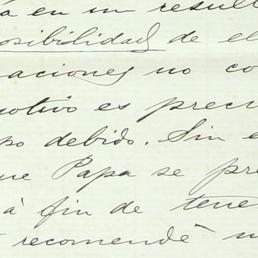 á en un result
osibilidad de el
aciones no co
otivo es precu
po debido. Sin e
ue Papa se pre
à fin de tene
recomendé